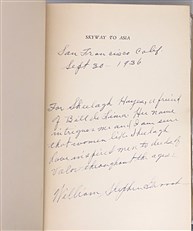 SKYWAY TO ASIA
San Francisco Calif.
Sept 30 - 1936
For Sheilagh Hayes, a friend
of Bill de Lima. Her name
intrigues me and I am sure
that women like Sheilagh
have inspired men to deeds of
valor throughout the ages.
William Stephen